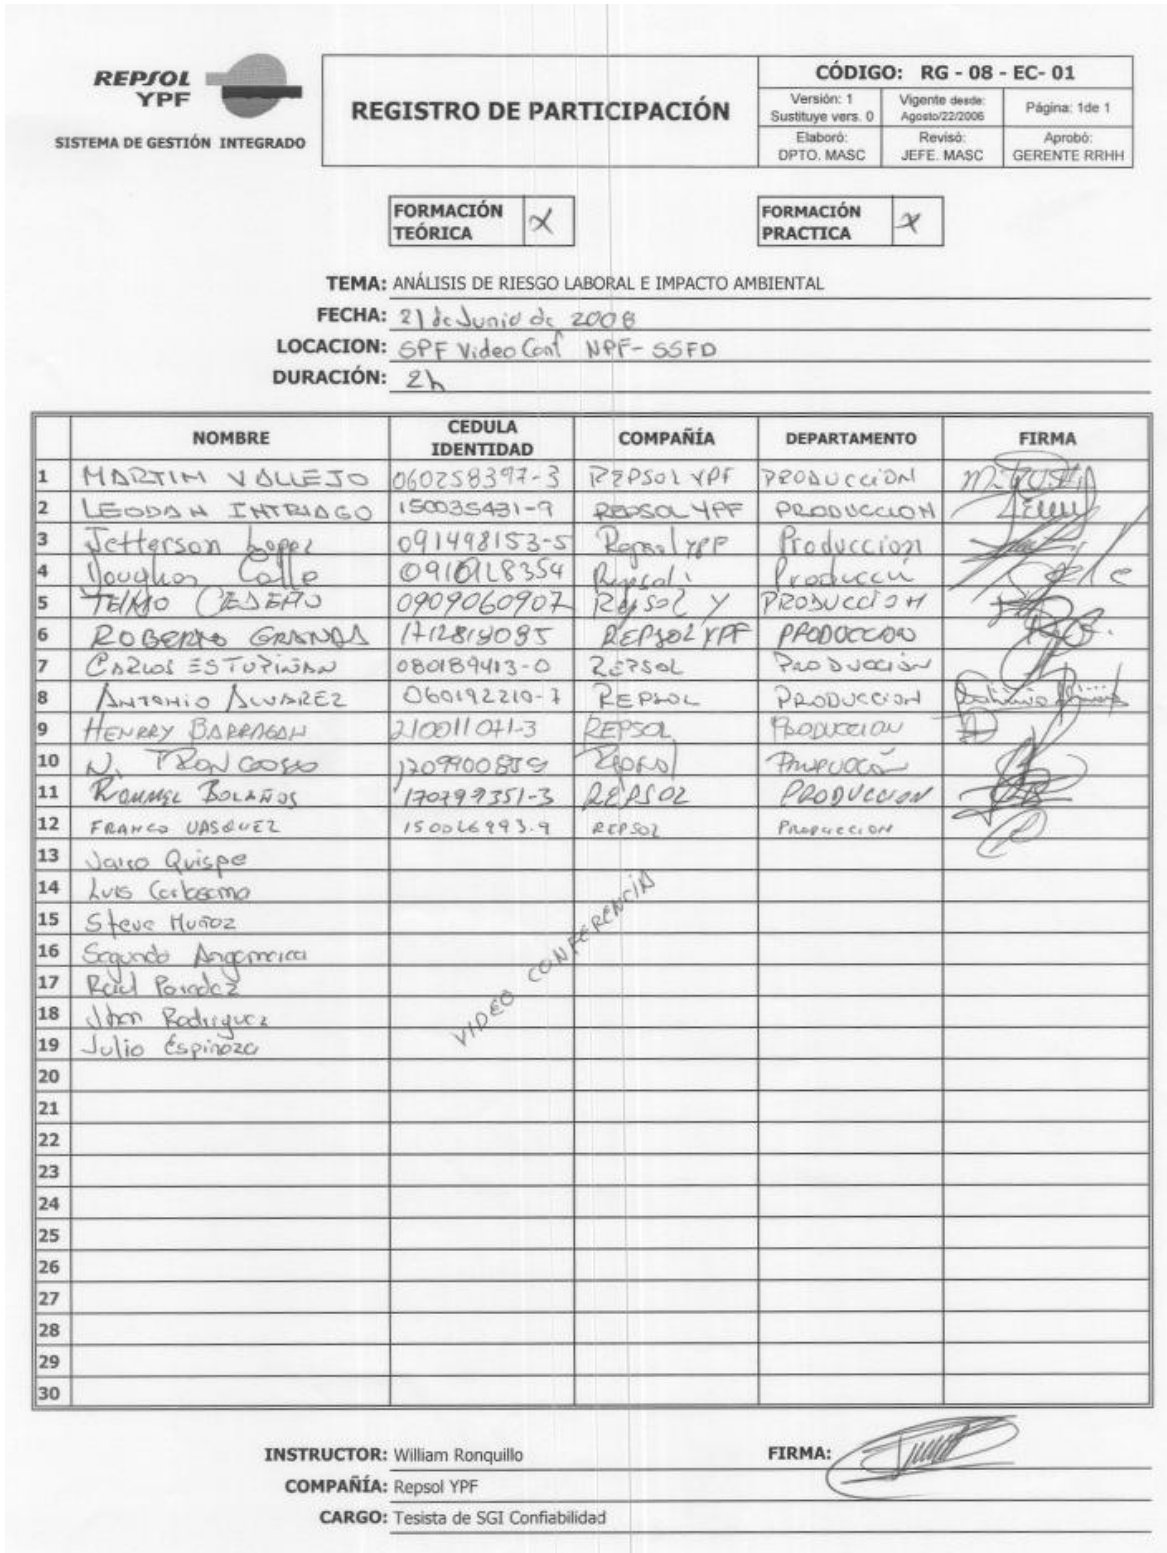 REPSOL
YPF
SISTEMA DE GESTIÓN INTEGRADO
REGISTRO DE PARTICIPACIÓN
CÓDIGO: RG - 08 - EC- 01
Versión: 1 Sustituye vers. 0 Vigente desde: Agosto/22/2006 Página: 1de 1
Elaboró: DPTO. MASC Revisó: JEFE. MASC Aprobó: GERENTE RRHH
FORMACIÓN TEÓRICA X FORMACIÓN PRACTICA X
TEMA: ANÁLISIS DE RIESGO LABORAL E IMPACTO AMBIENTAL
FECHA: 21 de Junio de 2008
LOCACION: SPF Video Conf NPF- SSFD
DURACIÓN: 2h
NOMBRE CEDULA IDENTIDAD COMPAÑÍA DEPARTAMENTO FIRMA
1 MARTIM VALLEJO 060258397-3 REPSOL YPF PRODUCCIÓN
2 LEODAN INTRIAGO 150035431-9 REPSOL YPF PRODUCCION
3 Jefferson Lopez 091498153-5 Repsol YPF Produccion
4 Douglas Calle Repsol
5 TELMO CEDEÑO 0909060907 Repsol Y PRODUCCIÓN
6 ROBERTO GRANDA 1712819085 REPSOL YPF PRODUCCION
7 CARLOS ESTUPIÑAN 080189413-0 REPSOL PRODUCCIÓN
8 ANTONIO ALVAREZ 060192210-7 REPSOL PRODUCCION
9 HENRRY BARRAGAN 210011071-3 REPSOL PRODUCCION
10 N. TRONCOSO Repsol
11 ROMMEL BOLAÑOS 170799351-3 REPSOL PRODUCCION
12 FRANCO VASQUEZ REPSOL PRODUCCION
13 Jairo Quispe
14 Luis
15 Steve Muñoz
16 Segundo Angamarca
17 Raul Paredez
18 Jhon Rodriguez
19 Julio Espinoza
VIDEO CONFERENCIA
20
21
22
23
24
25
26
27
28
29
30
INSTRUCTOR: William Ronquillo FIRMA:
COMPAÑÍA: Repsol YPF
CARGO: Tesista de SGI Confiabilidad